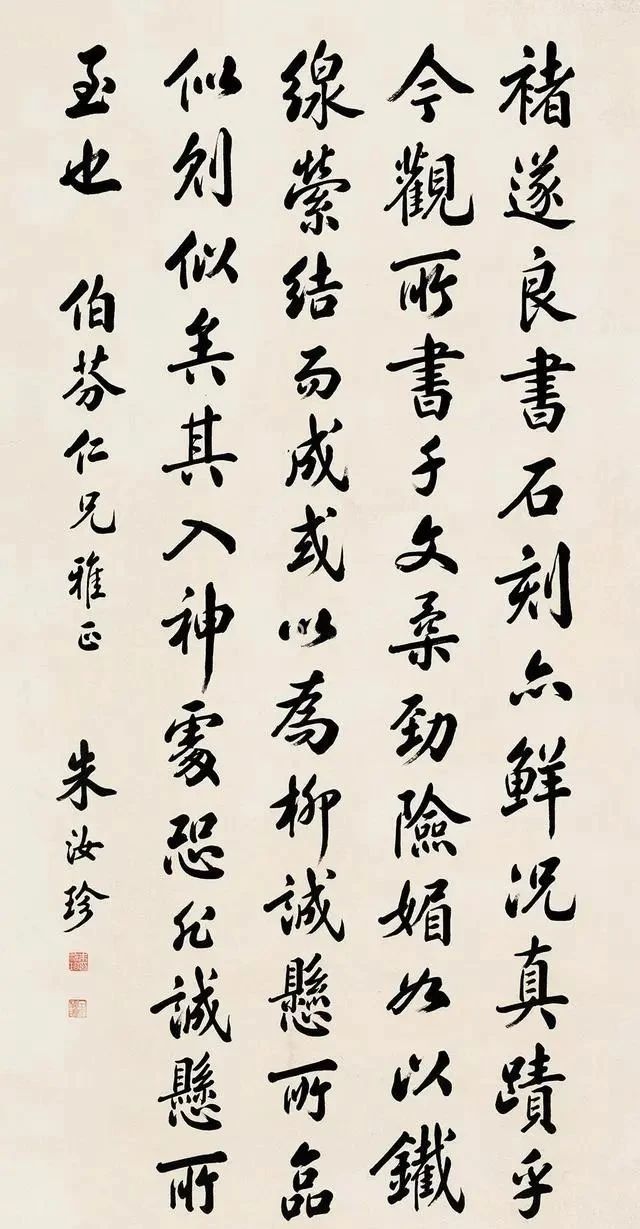 褚遂良書石刻亦鮮况真蹟乎
今觀所書千文柔勁險媚如以鐵
線縈結而成或以為柳誠懸所臨
似則似矣其入神處恐非誠懸所
至也 伯芬仁兄雅正 朱汝珍